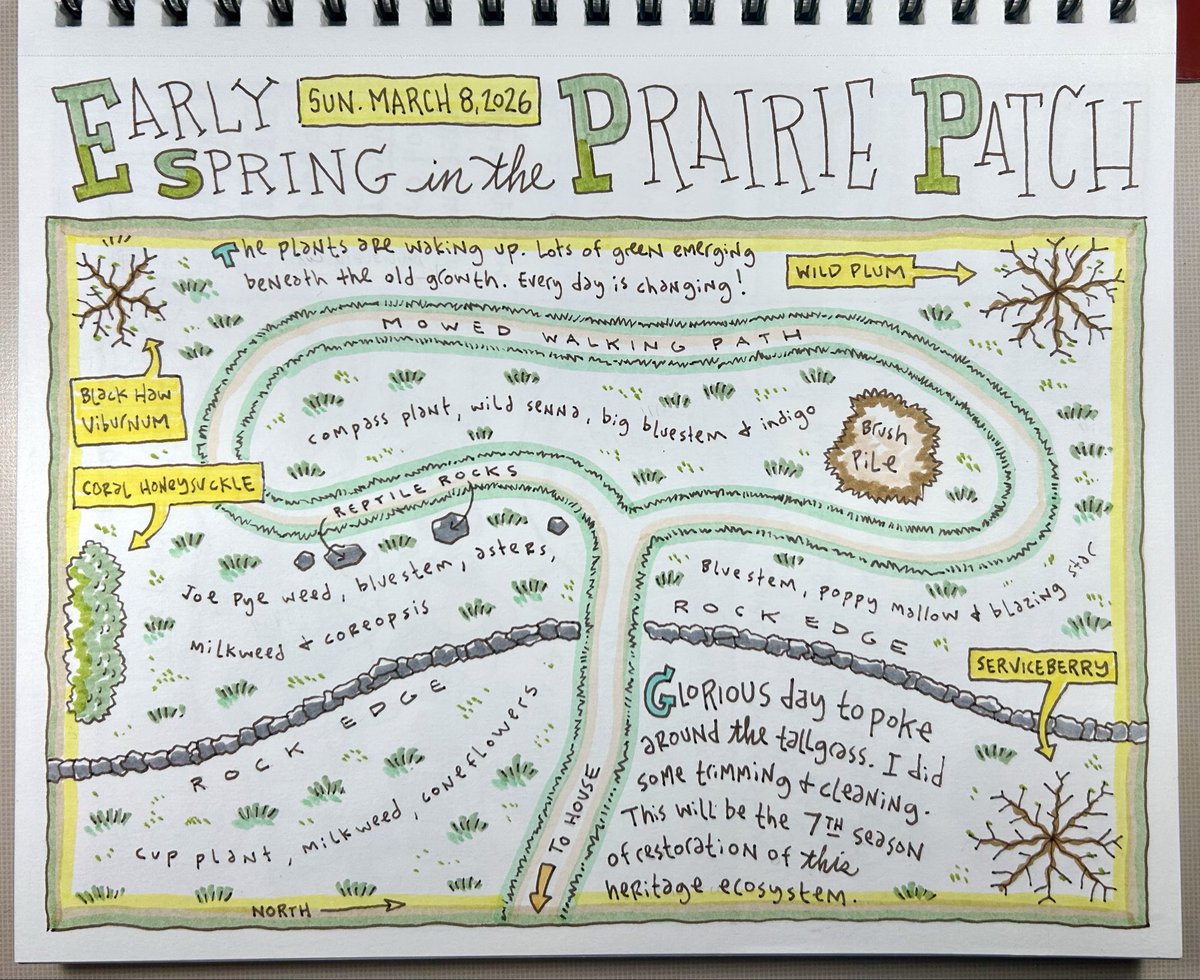 EARLY SPRING in the PRAIRIE PATCH
SUN. MARCH 8, 2026
The plants are waking up. Lots of green emerging
beneath the old growth. Every day is changing!
WILD PLUM
MOWED WALKING PATH
BLACK HAW
VIBURNUM
compass plant, wild senna, big bluestem & indigo
Brush
Pile
CORAL HONEYSUCKLE
REPTILE ROCKS
Joe Pye weed, bluestem, asters,
milkweed & coreopsis
Bluestem, poppy mallow & blazing star
ROCK EDGE
SERVICEBERRY
ROCK EDGE
cup plant, milkweed, coneflowers
GLORIOUS day to poke
around the tallgrass. I did
some trimming & cleaning.
This will be the 7TH season
of restoration of this
heritage ecosystem.
TO HOUSE
NORTH